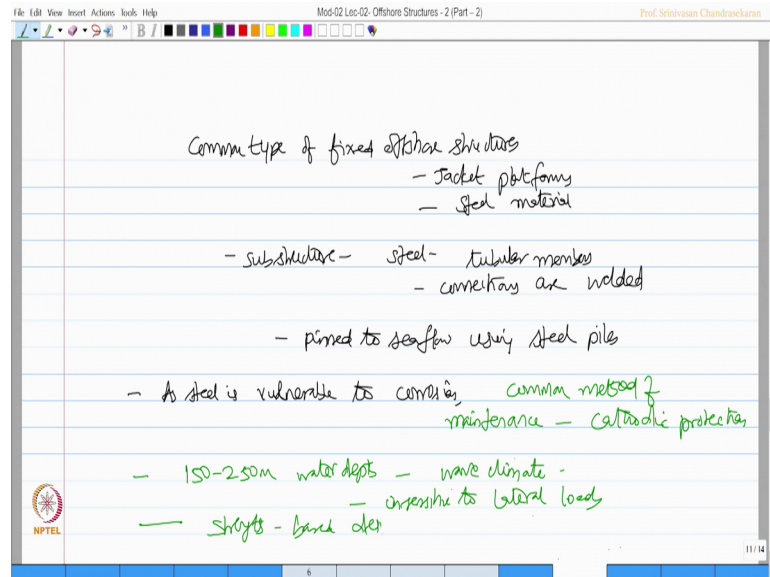 File Edit View Insert Actions Tools Help
Mod-02 Lec-02- Offshore Structures - 2 (Part – 2)
Prof. Srinivasan Chandrasekaran
B I
Common type of fixed offshore structures
- Jacket platforms
- steel material
- substructure - steel - tubular members
- connections are welded
- pinned to seafloor using steel piles
- As steel is vulnerable to corrosion, common method of
maintenance - cathodic protection
- 150-250m water depts - wave climate -
- insensitive to lateral loads
- based
NPTEL
11 / 14
6